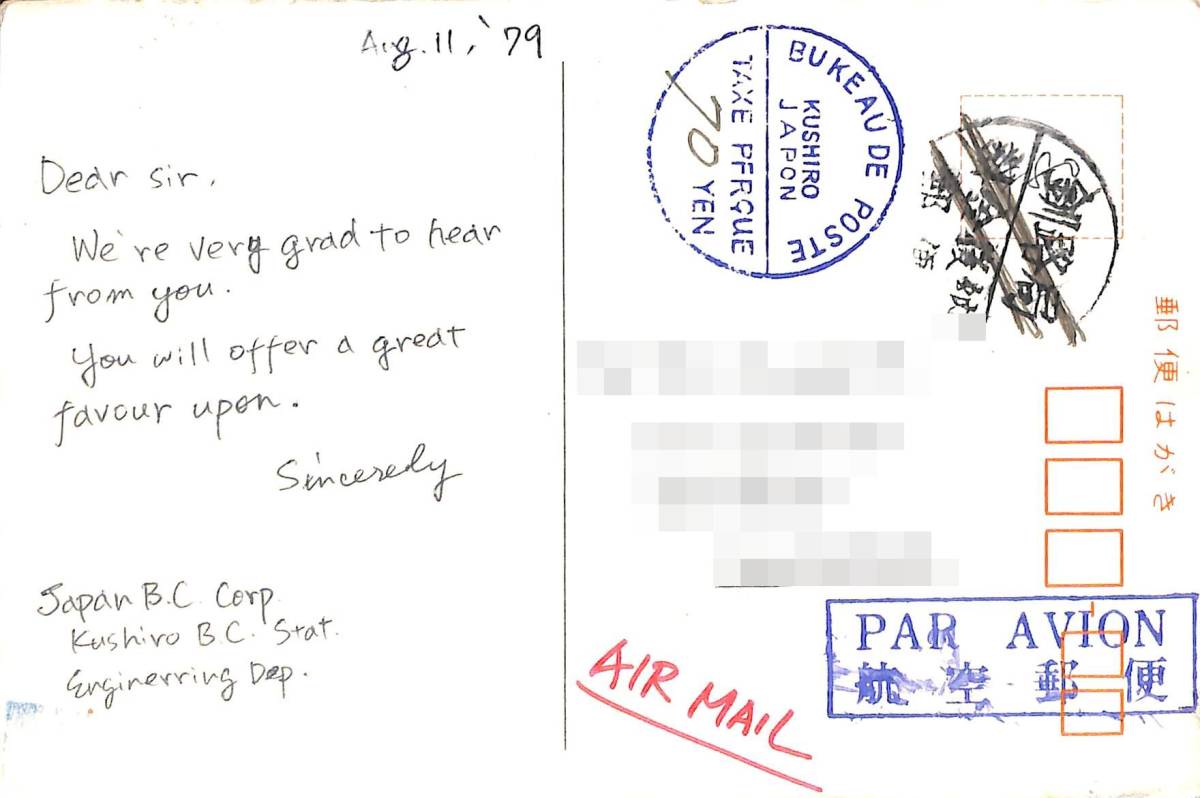 Aug. 11, '79
Dear sir,
We're very grad to hear
from you.
You will offer a great
favour upon.
Sincerely
Japan B.C. Corp.
Kushiro B.C. Stat.
Enginerring Dep.
BUKEAU DE POSTE
KUSHIRO
JAPON
TAXE PFRÇUE
70 YEN
郵便はがき
PAR AVION
航空郵便
AIR MAIL